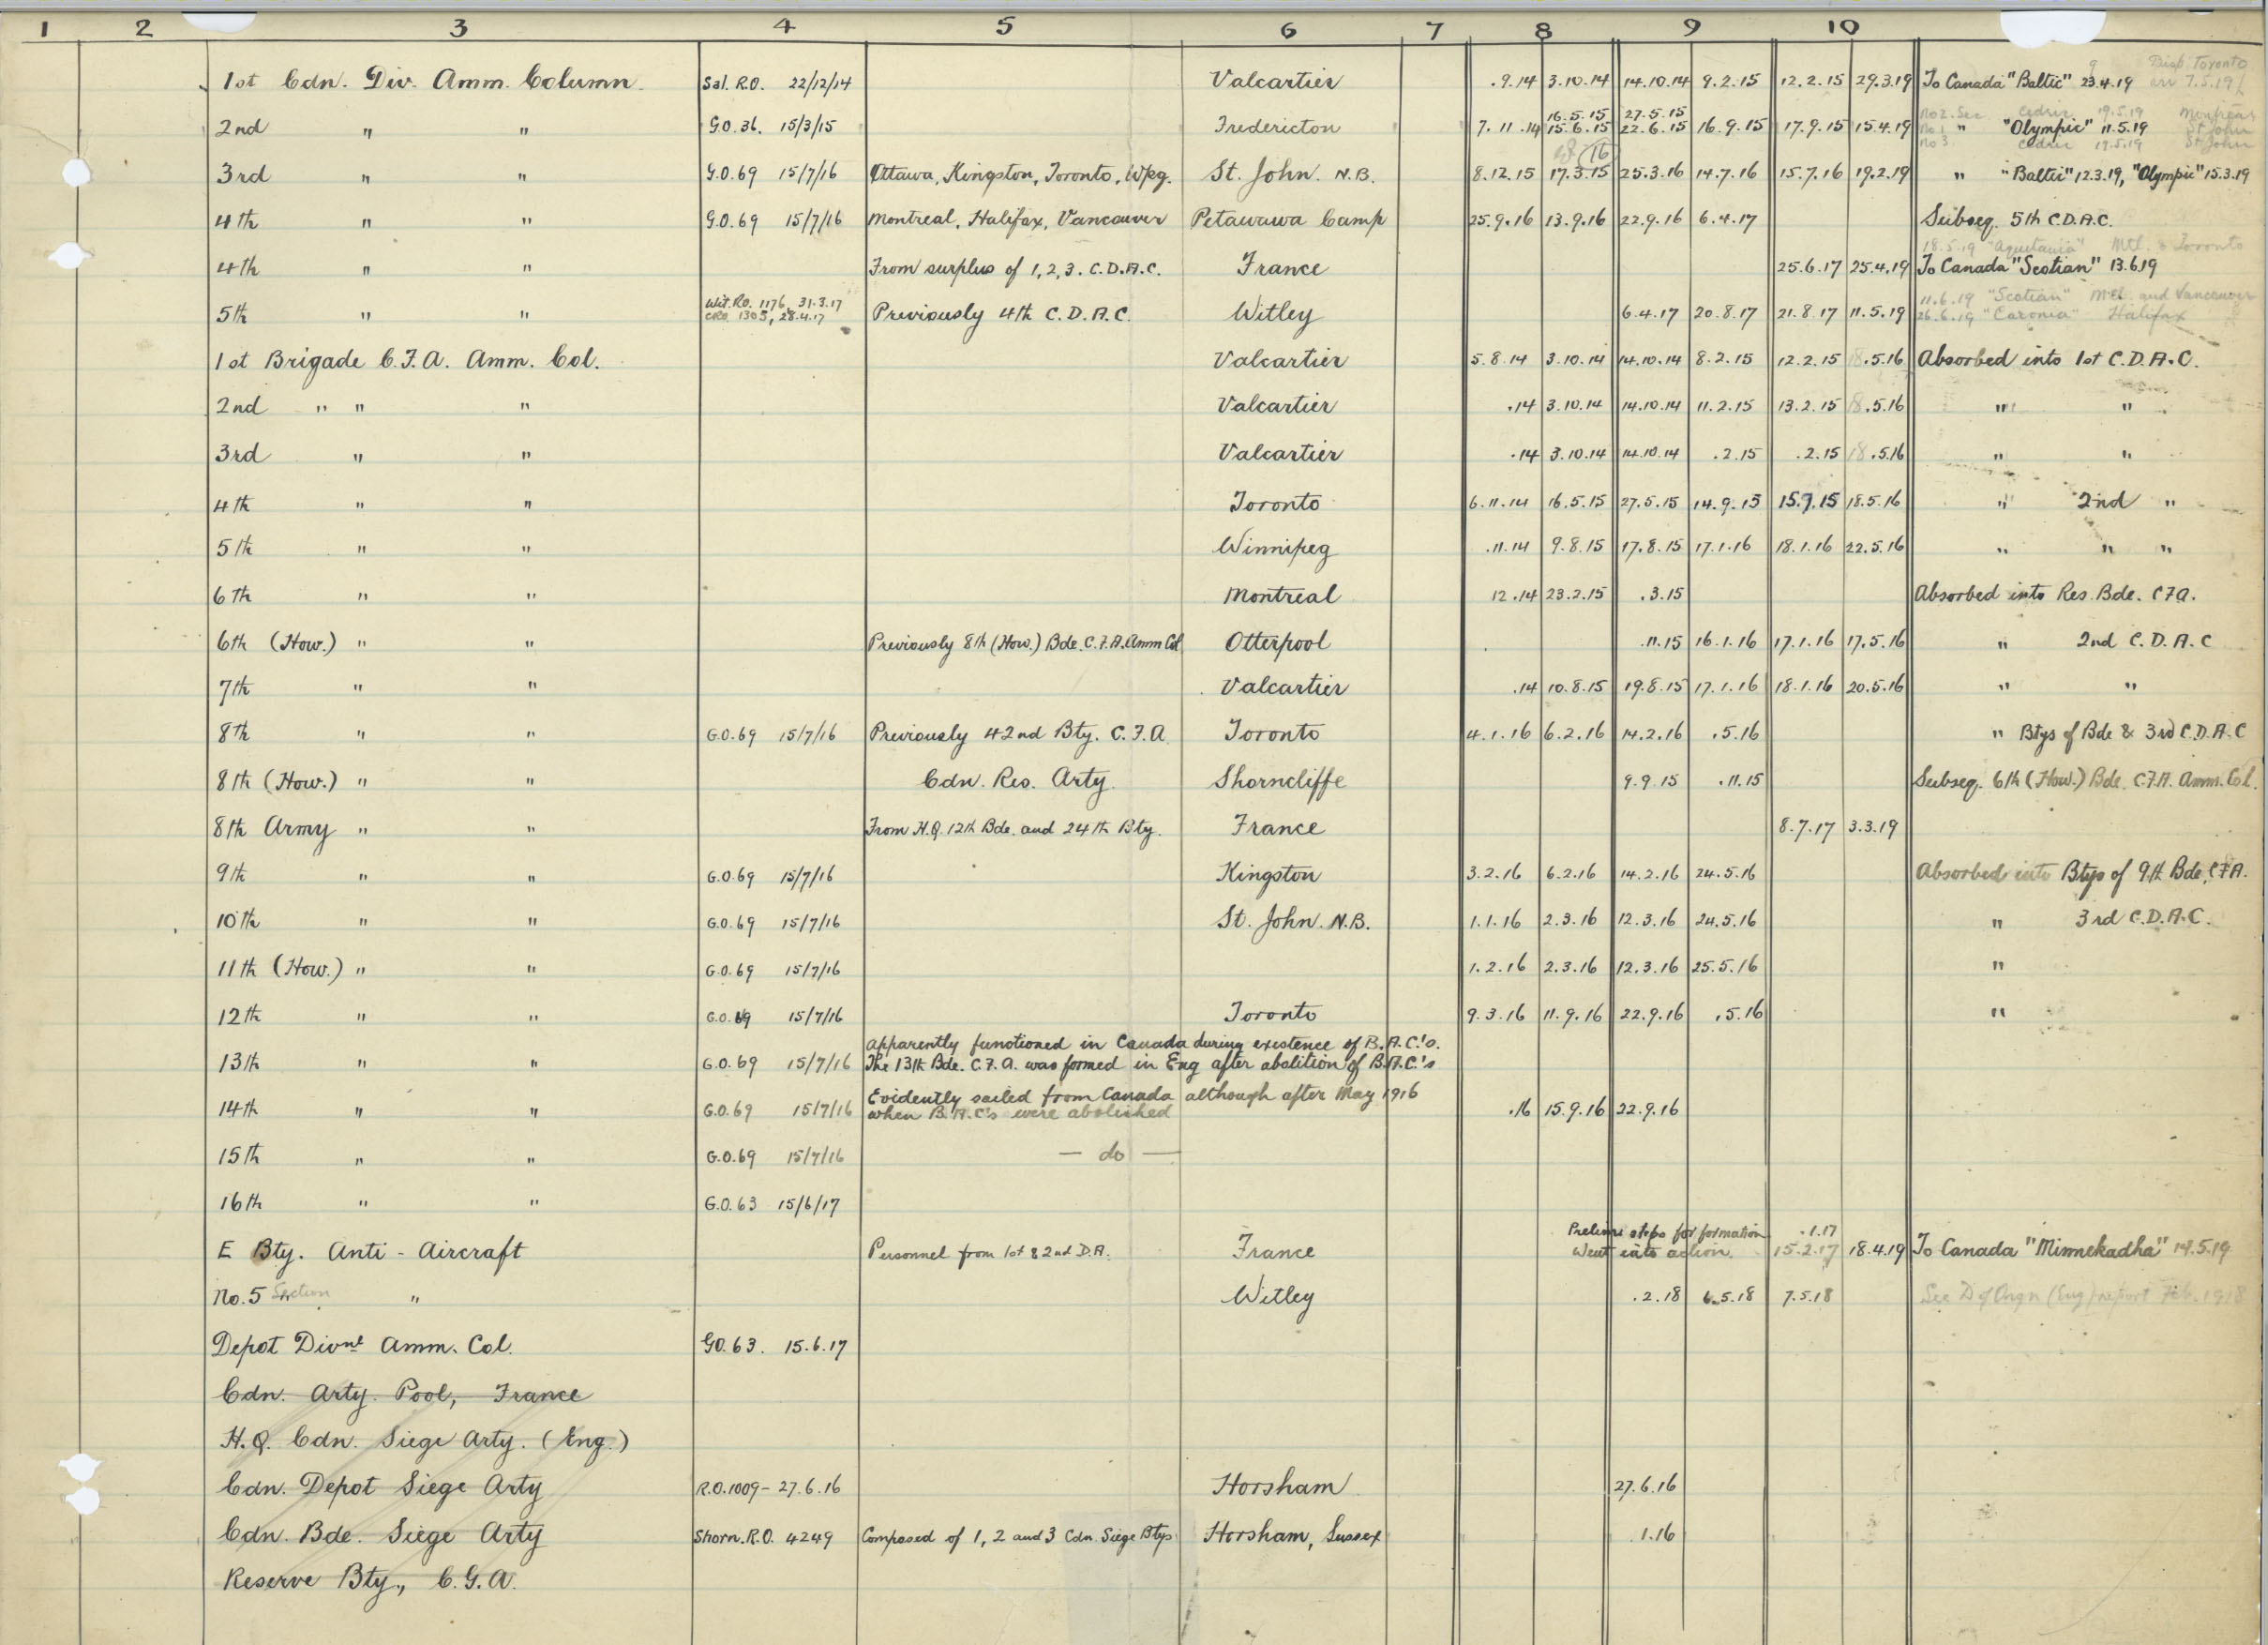 1 2 3 4 5 6 7 8 9 10
Disp. Toronto
1st Cdn. Div. Amm. Column. Sal. R.O. 22/12/14 Valcartier .9.14 3.10.14 14.10.14 9.2.15 12.2.15 29.3.19 To Canada "Baltic" 23.4.19 arr 7.5.19
16.5.15 27.5.15 No 2. Sec Cedric 19.5.19 Montreal
2nd " " G.O. 36. 15/3/15 Fredericton 7.11.14 15.6.15 22.6.15 16.9.15 17.9.15 15.4.19 No 1 " "Olympic" 11.5.19 St John
No 3 Cedric 19.5.19 St John
16
3rd " " G.O. 69 15/7/16 Ottawa, Kingston, Toronto, Wpg. St. John. N.B. 8.12.15 17.3.15 25.3.16 14.7.16 15.7.16 19.2.19 " "Baltic" 12.3.19, "Olympic" 15.3.19
4th " " G.O. 69 15/7/16 Montreal, Halifax, Vancouver Petawawa Camp 25.9.16 13.9.16 22.9.16 6.4.17 Subseq. 5th C.D.A.C.
18.5.19 "Aquitania" Mtl. & Toronto
4th " " From surplus of 1, 2, 3. C.D.A.C. France 25.6.17 25.4.19 To Canada "Scotian" 13.6.19
Wit. Ro. 1176, 31.3.17 11.6.19 "Scotian" Mtl. and Vancouver
5th " " CRO. 1305, 28.4.17 Previously 4th C.D.A.C. Witley 6.4.17 20.8.17 21.8.17 11.5.19 26.6.19 "Caronia" Halifax
1st Brigade C.F.A. Amm. Col. Valcartier 5.8.14 3.10.14 14.10.14 8.2.15 12.2.15 18.5.16 Absorbed into 1st C.D.A.C.
2nd " " " Valcartier .14 3.10.14 14.10.14 11.2.15 13.2.15 18.5.16 " "
3rd " " Valcartier .14 3.10.14 14.10.14 .2.15 .2.15 18.5.16 " "
4th " " Toronto 6.11.14 16.5.15 27.5.15 14.9.15 15.9.15 18.5.16 " 2nd "
5th " " Winnipeg .11.14 9.8.15 17.8.15 17.1.16 18.1.16 22.5.16 " " "
6th " " Montreal 12.14 23.2.15 .3.15 Absorbed into Res. Bde. CFA.
6th (How.) " " Previously 8th (How.) Bde. C.F.A. Amm Col Otterpool .11.15 16.1.16 17.1.16 17.5.16 " 2nd C.D.A.C
7th " " Valcartier .14 10.8.15 19.8.15 17.1.16 18.1.16 20.5.16 " "
8th " " G.O. 69 15/7/16 Previously 42nd Bty. C.F.A. Toronto 4.1.16 6.2.16 14.2.16 .5.16 " Btys of Bde & 3rd C.D.A.C
8th (How.) " " Cdn. Res. Arty. Shorncliffe 9.9.15 .11.15 Subseq. 6th (How.) Bde. C.F.A. Amm. Col.
8th Army " " From H.Q. 12th Bde. and 24th Bty. France 8.7.17 3.3.19
9th " " G.O. 69 15/7/16 Kingston 3.2.16 6.2.16 14.2.16 24.5.16 Absorbed into Btys of 9th Bde, CFA.
10th " " G.O. 69 15/7/16 St. John. N.B. 1.1.16 2.3.16 12.3.16 24.5.16 " 3rd C.D.A.C.
11th (How.) " " G.O. 69 15/7/16 1.2.16 2.3.16 12.3.16 25.5.16 "
12th " " G.O. 69 15/7/16 Toronto 9.3.16 11.9.16 22.9.16 .5.16 "
Apparently functioned in Canada during existence of B.A.C.'s.
13th " " G.O. 69 15/7/16 The 13th Bde. C.F.A. was formed in Eng after abolition of B.A.C.'s
Evidently sailed from Canada although after May 1916
14th " " G.O. 69 15/7/16 when B.A.C's were abolished .16 15.9.16 22.9.16
15th " " G.O. 69 15/7/16 — do —
16th " " G.O. 63 15/6/17
Prelim: steps for formation .1.17
E Bty. Anti-Aircraft Personnel from 1st & 2nd D.A. France Went into action 15.2.17 18.4.19 To Canada "Minnekadha" 14.5.19
No. 5 Section " Witley .2.18 6.5.18 7.5.18 See D of Orgn (Eng) report Feb. 1918
Depot Divnl Amm. Col. GO. 63. 15.6.17
Cdn. Arty. Pool, France
H.Q. Cdn. Siege Arty. (Eng.)
Cdn. Depot Siege Arty R.O. 1009 - 27.6.16 Horsham 27.6.16
Cdn. Bde. Siege Arty Shorn. R.O. 4249 Composed of 1, 2 and 3 Cdn. Siege Btys Horsham, Sussex 1.16
Reserve Bty., C.G.A.